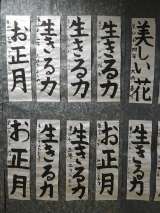 美しい花
生きる力
生きる力
生きる力
お正月
生きる力
生きる力
お正月
生きる力
お正月